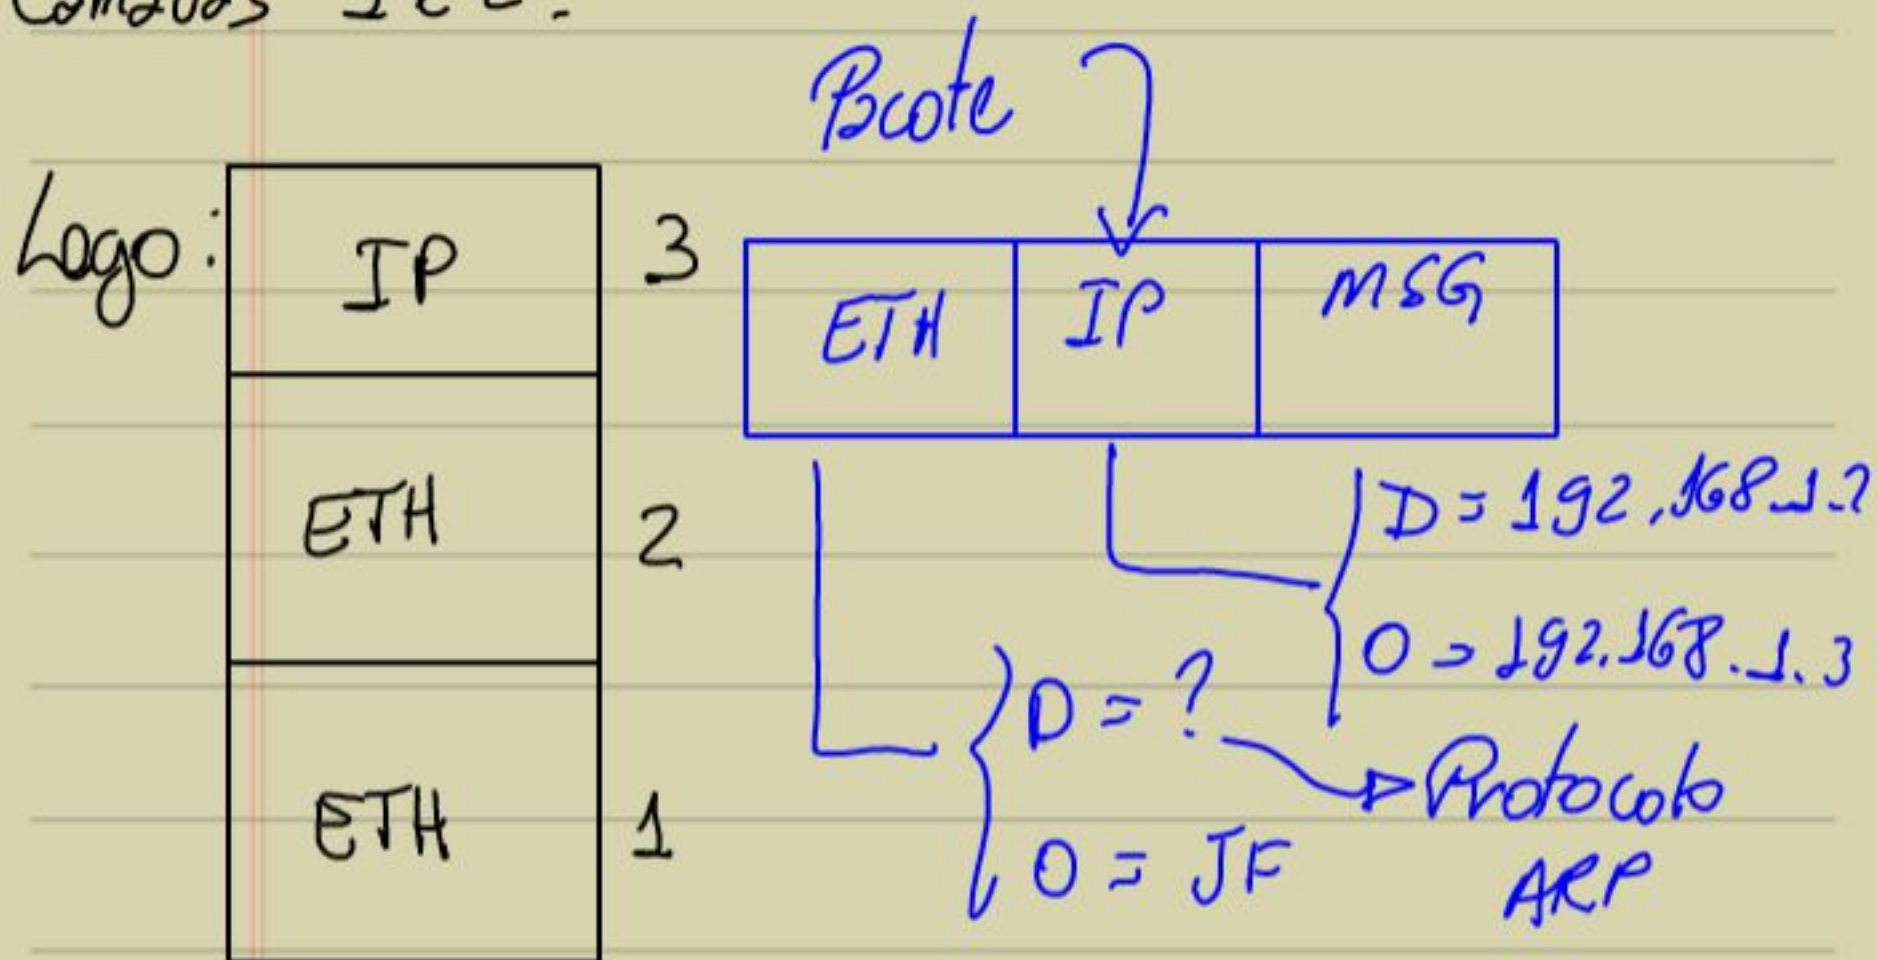 Camadas
Pacote
Logo:
IP 3
ETH 2
ETH 1
ETH IP MSG
D = 192.168.1.2
O = 192.168.1.3
D = ?
O = JF
Protocolo
ARP